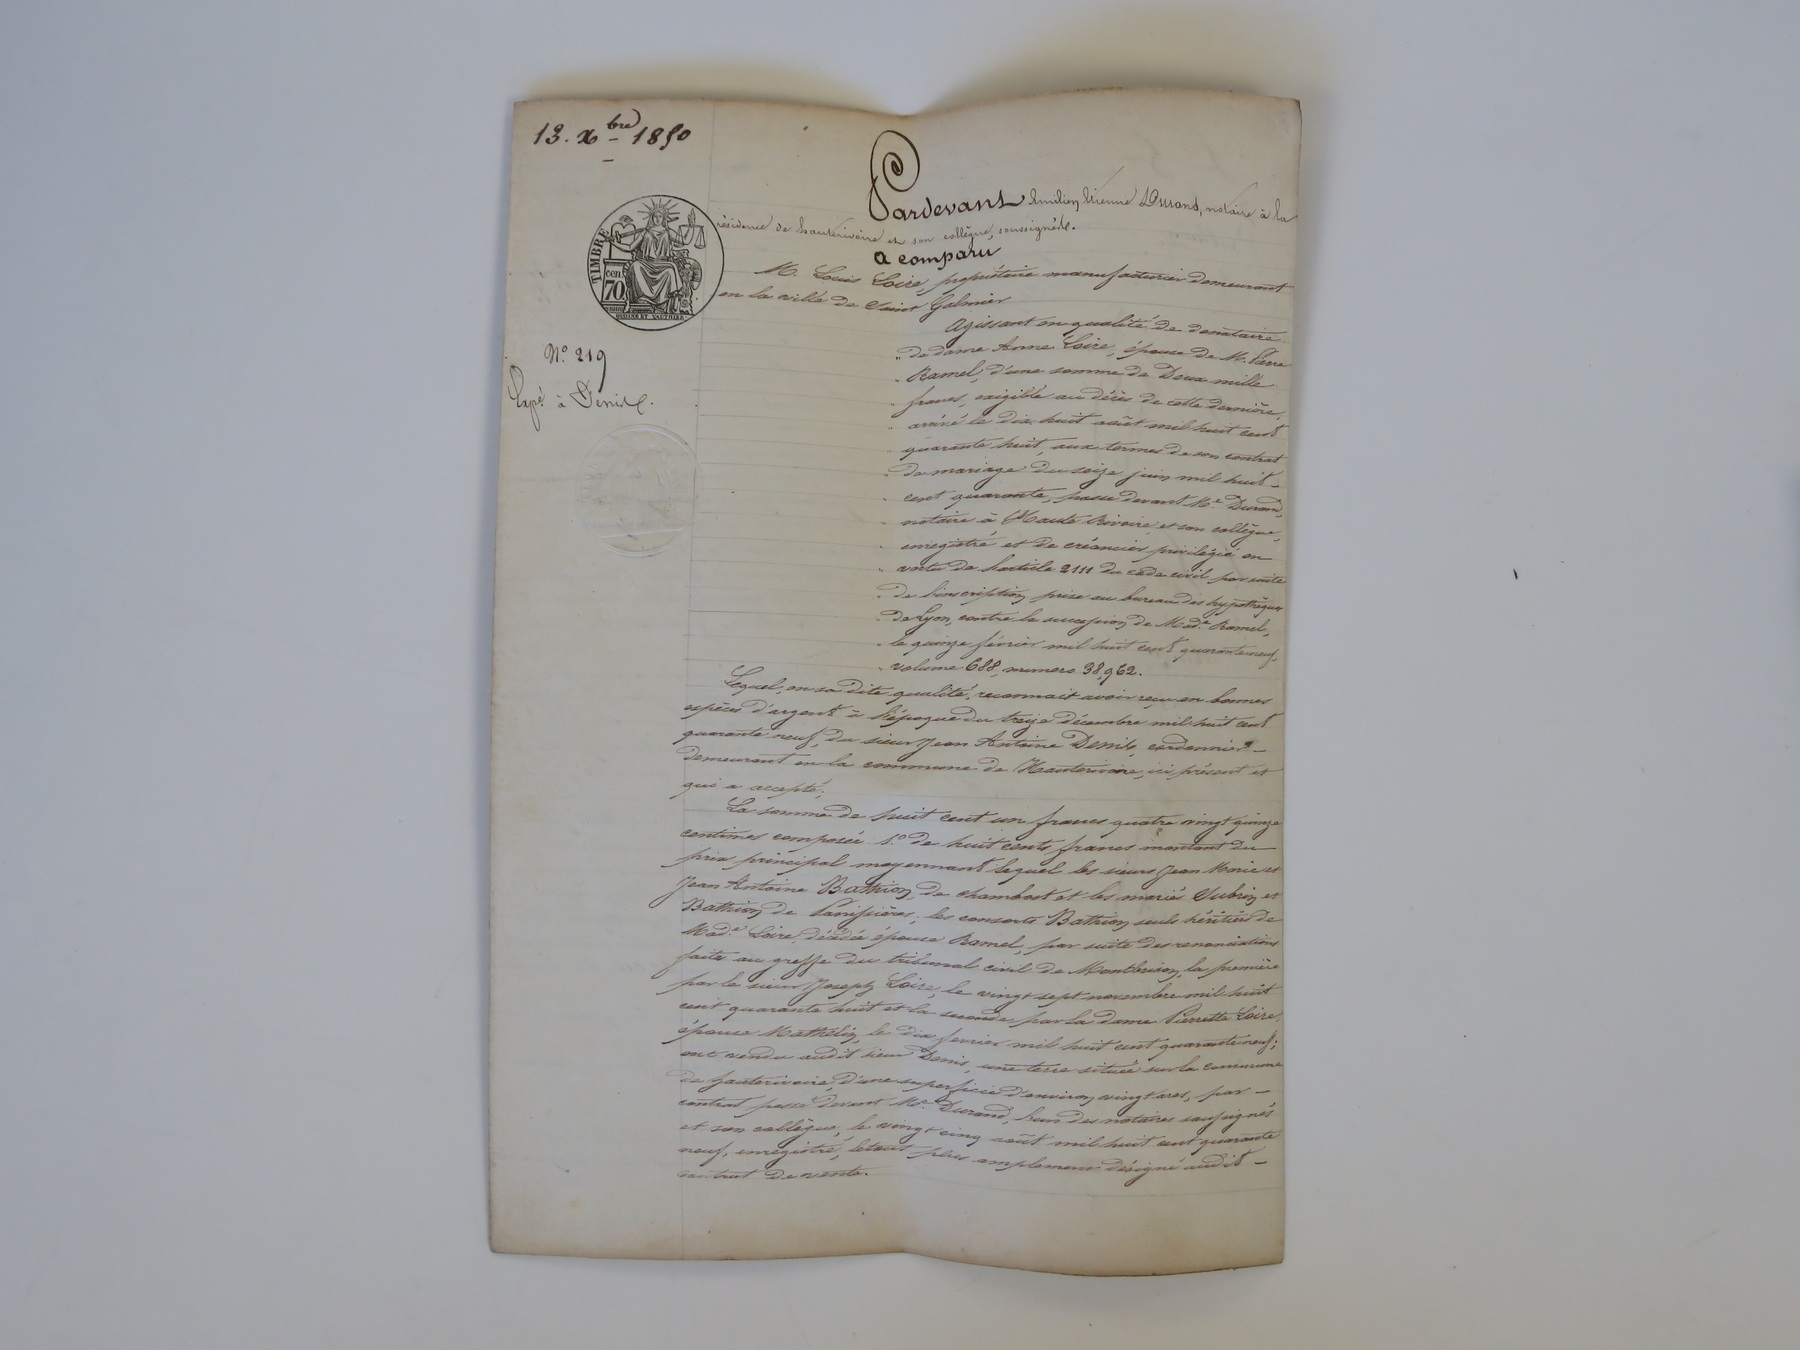 13. Xbre 1850
TIMBRE
cen.
70
No. 219
Expé. à Denis.
Pardevant Emilien Etienne Durand, notaire à la
résidence de hauterivoire et son collègue, soussignés.
a comparu
M. Louis Loire, propriétaire manufacturier demeurant
en la ville de Saint Galmier
Agissant en qualité de donataire
" de dame Anne Loire, épouse de M. Pierre
" Ramel, d'une somme de Deux mille
" francs, exigible au décès de cette dernière,
" arrivé le dix huit août mil huit cent
" quarante huit, aux termes de son contrat
" de mariage du seize juin mil huit
" cent quarante, passé devant Me. Durand,
" notaire à Haute Rivoire et son collègue,
" enregistré et de créancier privilégié en
" vertu de l'article 2111 du code civil par suite
" de l'inscription prise au bureau des hypothèques
" de Lyon, contre la succession de Made. Ramel,
" le quinze février mil huit cent quarante neuf,
" volume 688, numero 38,962.
Lequel, en sa dite qualité, reconnait avoir reçu en bonnes
espèces d'argent à l'époque du treize décembre mil huit cent
quarante neuf, du sieur Jean Antoine Denis, cordonnier
demeurant en la commune de Hauterivoire, ici présent et
qui a accepté;
La somme de huit cent un francs quatre vingt quinze
centimes composée 1o. de huit cents francs montant du
prix principal moyennant lequel les sieurs Jean Marie et
Jean Antoine Bathion, de chambost et les mariés Subrin et
Bathion de Panissières, les consorts Bathion seuls héritiers de
Made. Loire, décédée épouse Ramel, par suite des renonciations
faite au greffe du tribunal civil de Montbrison, la première
par le sieur Joseph Loire, le vingt sept novembre mil huit
cent quarante huit et la seconde par la dame Pierrette Loire,
épouse Mathelin, le dix février mil huit cent quarante neuf;
ont vendu audit sieur Denis, une terre située sur la commune
de hauterivoire, d'une superficie d'environ vingt ares, par
contrat passé devant Me. Durand, l'un des notaires soussignés
et son collègue, le vingt cinq août mil huit cent quarante
neuf, enregistré, le tout plus amplement désigné audit
contrat de vente.